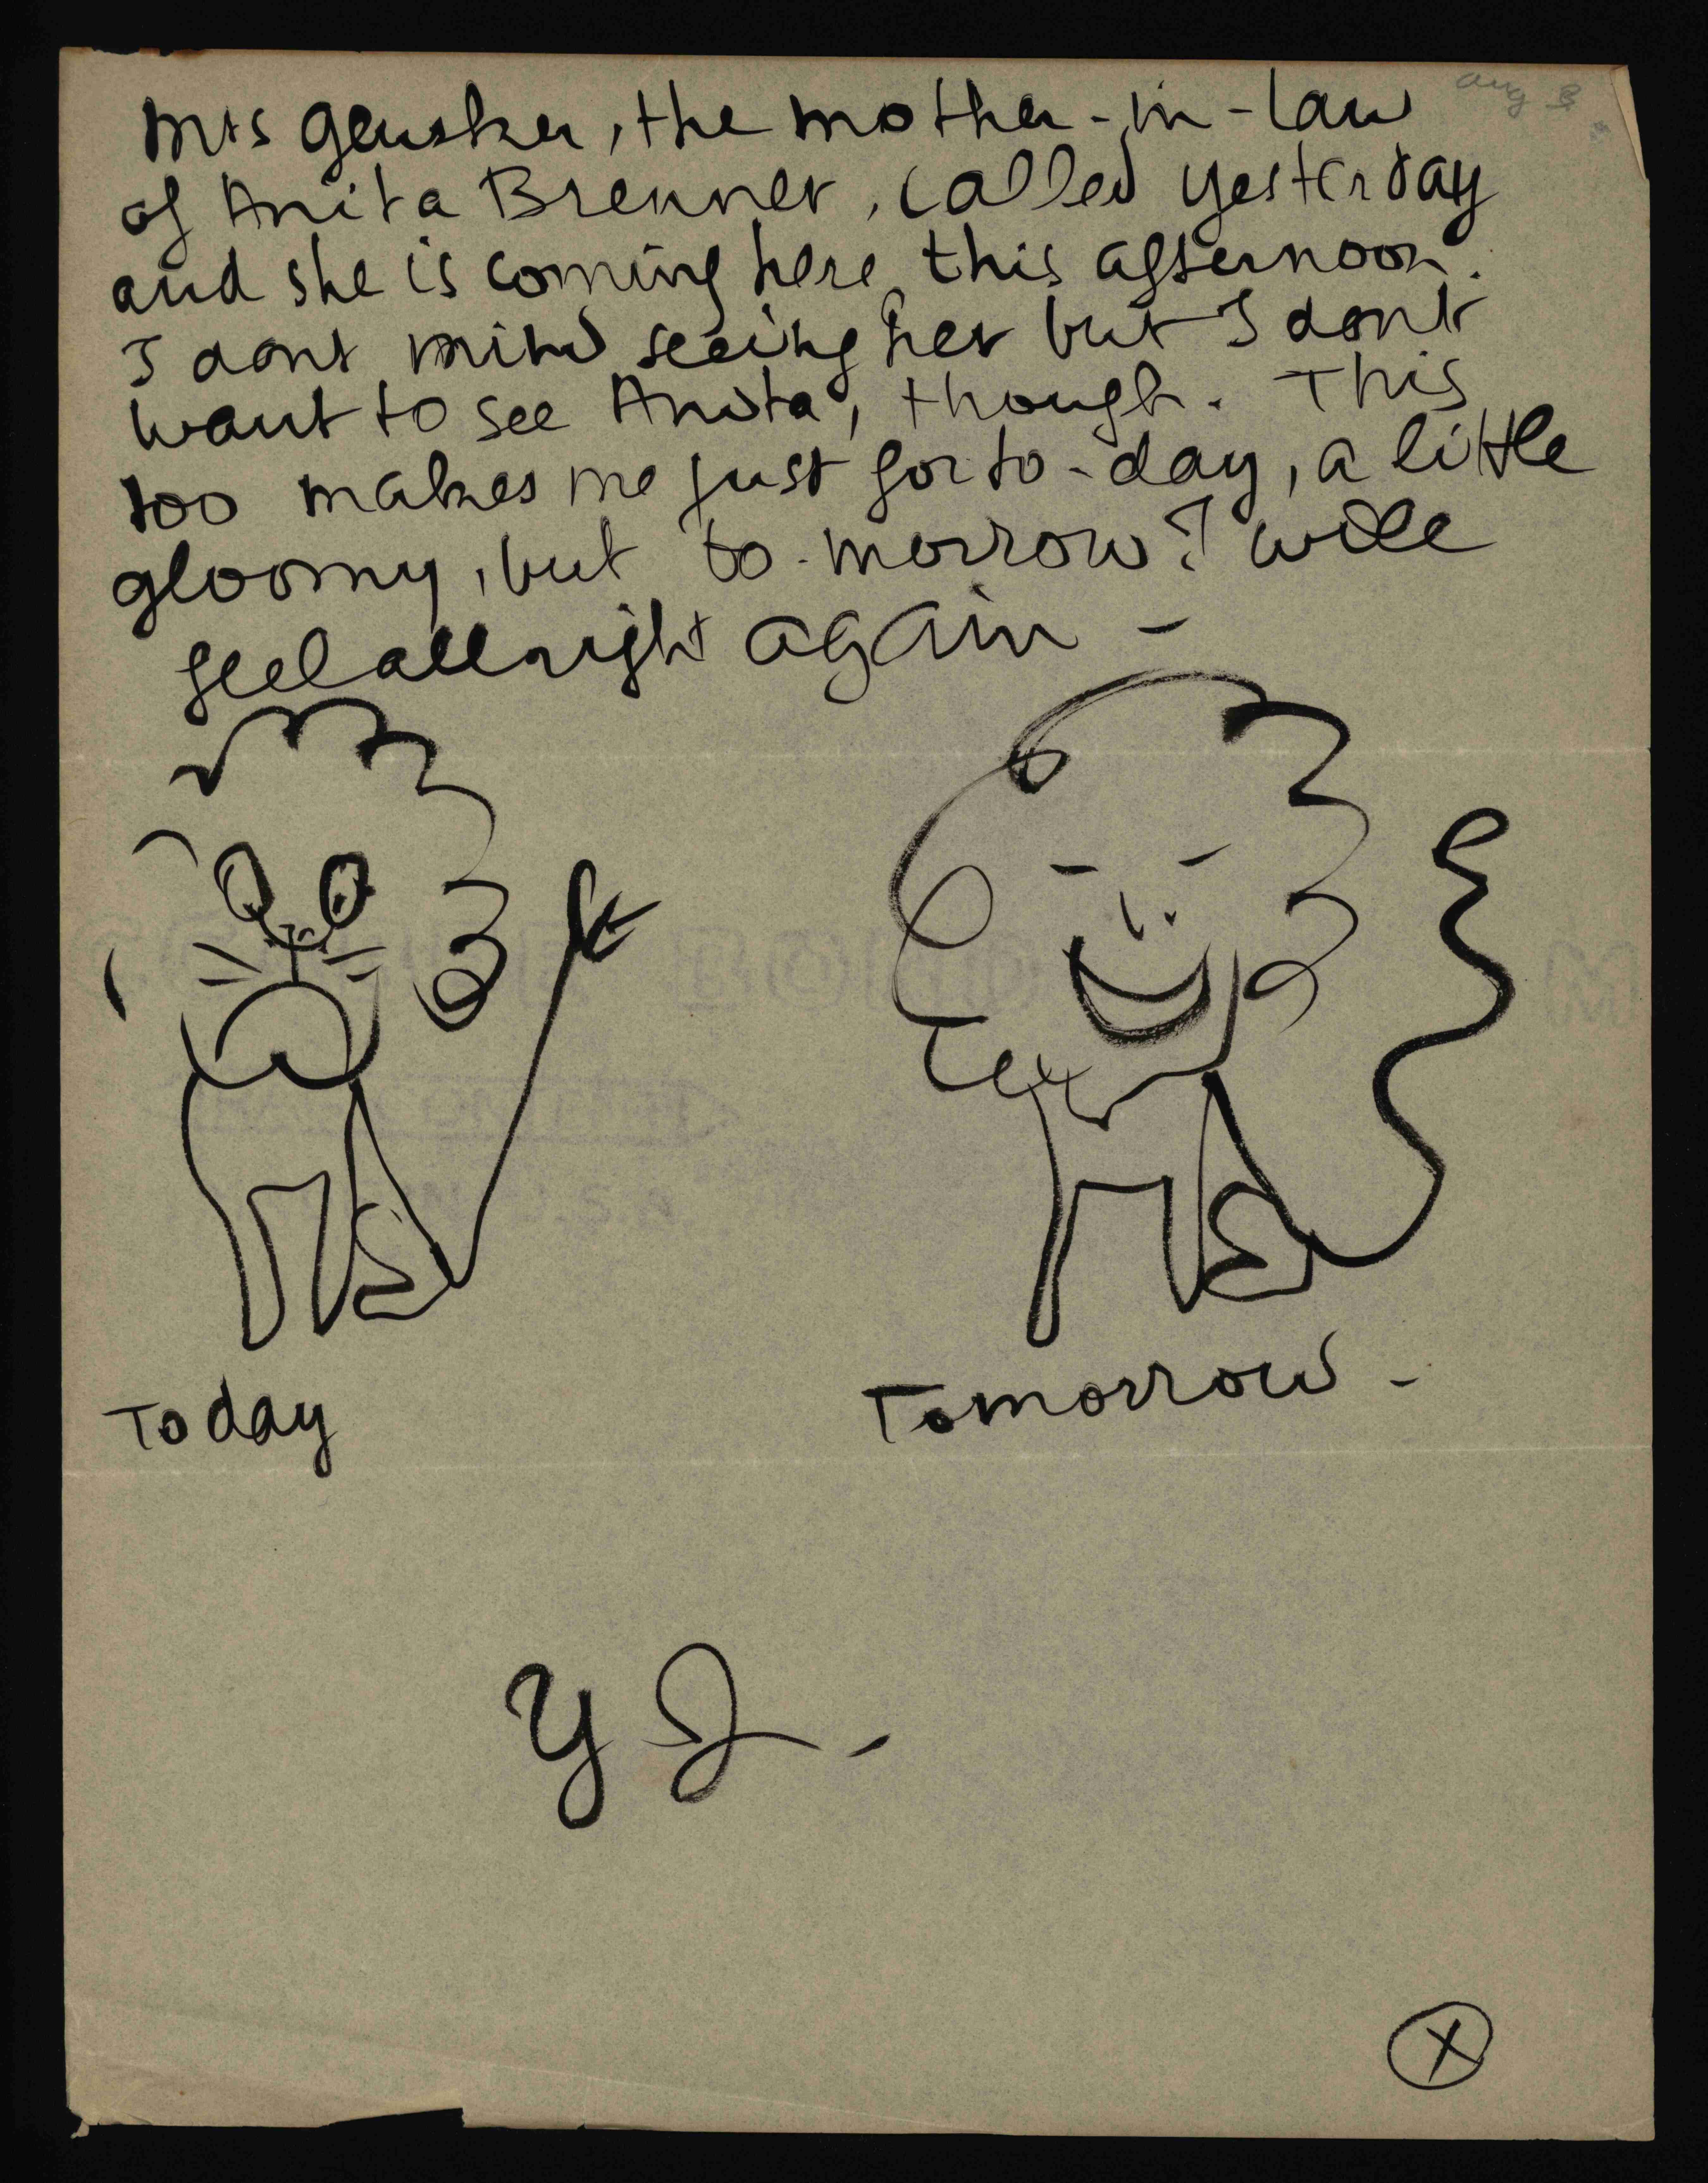 aug 3
Mrs Glusker, the mother-in-law
of Anita Brenner, called yesterday
and she is coming here this afternoon.
I dont mind seeing her but I dont
want to see Anita, though. This
too makes me just for to-day, a little
gloomy, but to-morrow I will
feel allright again -
Today
Tomorrow -
X